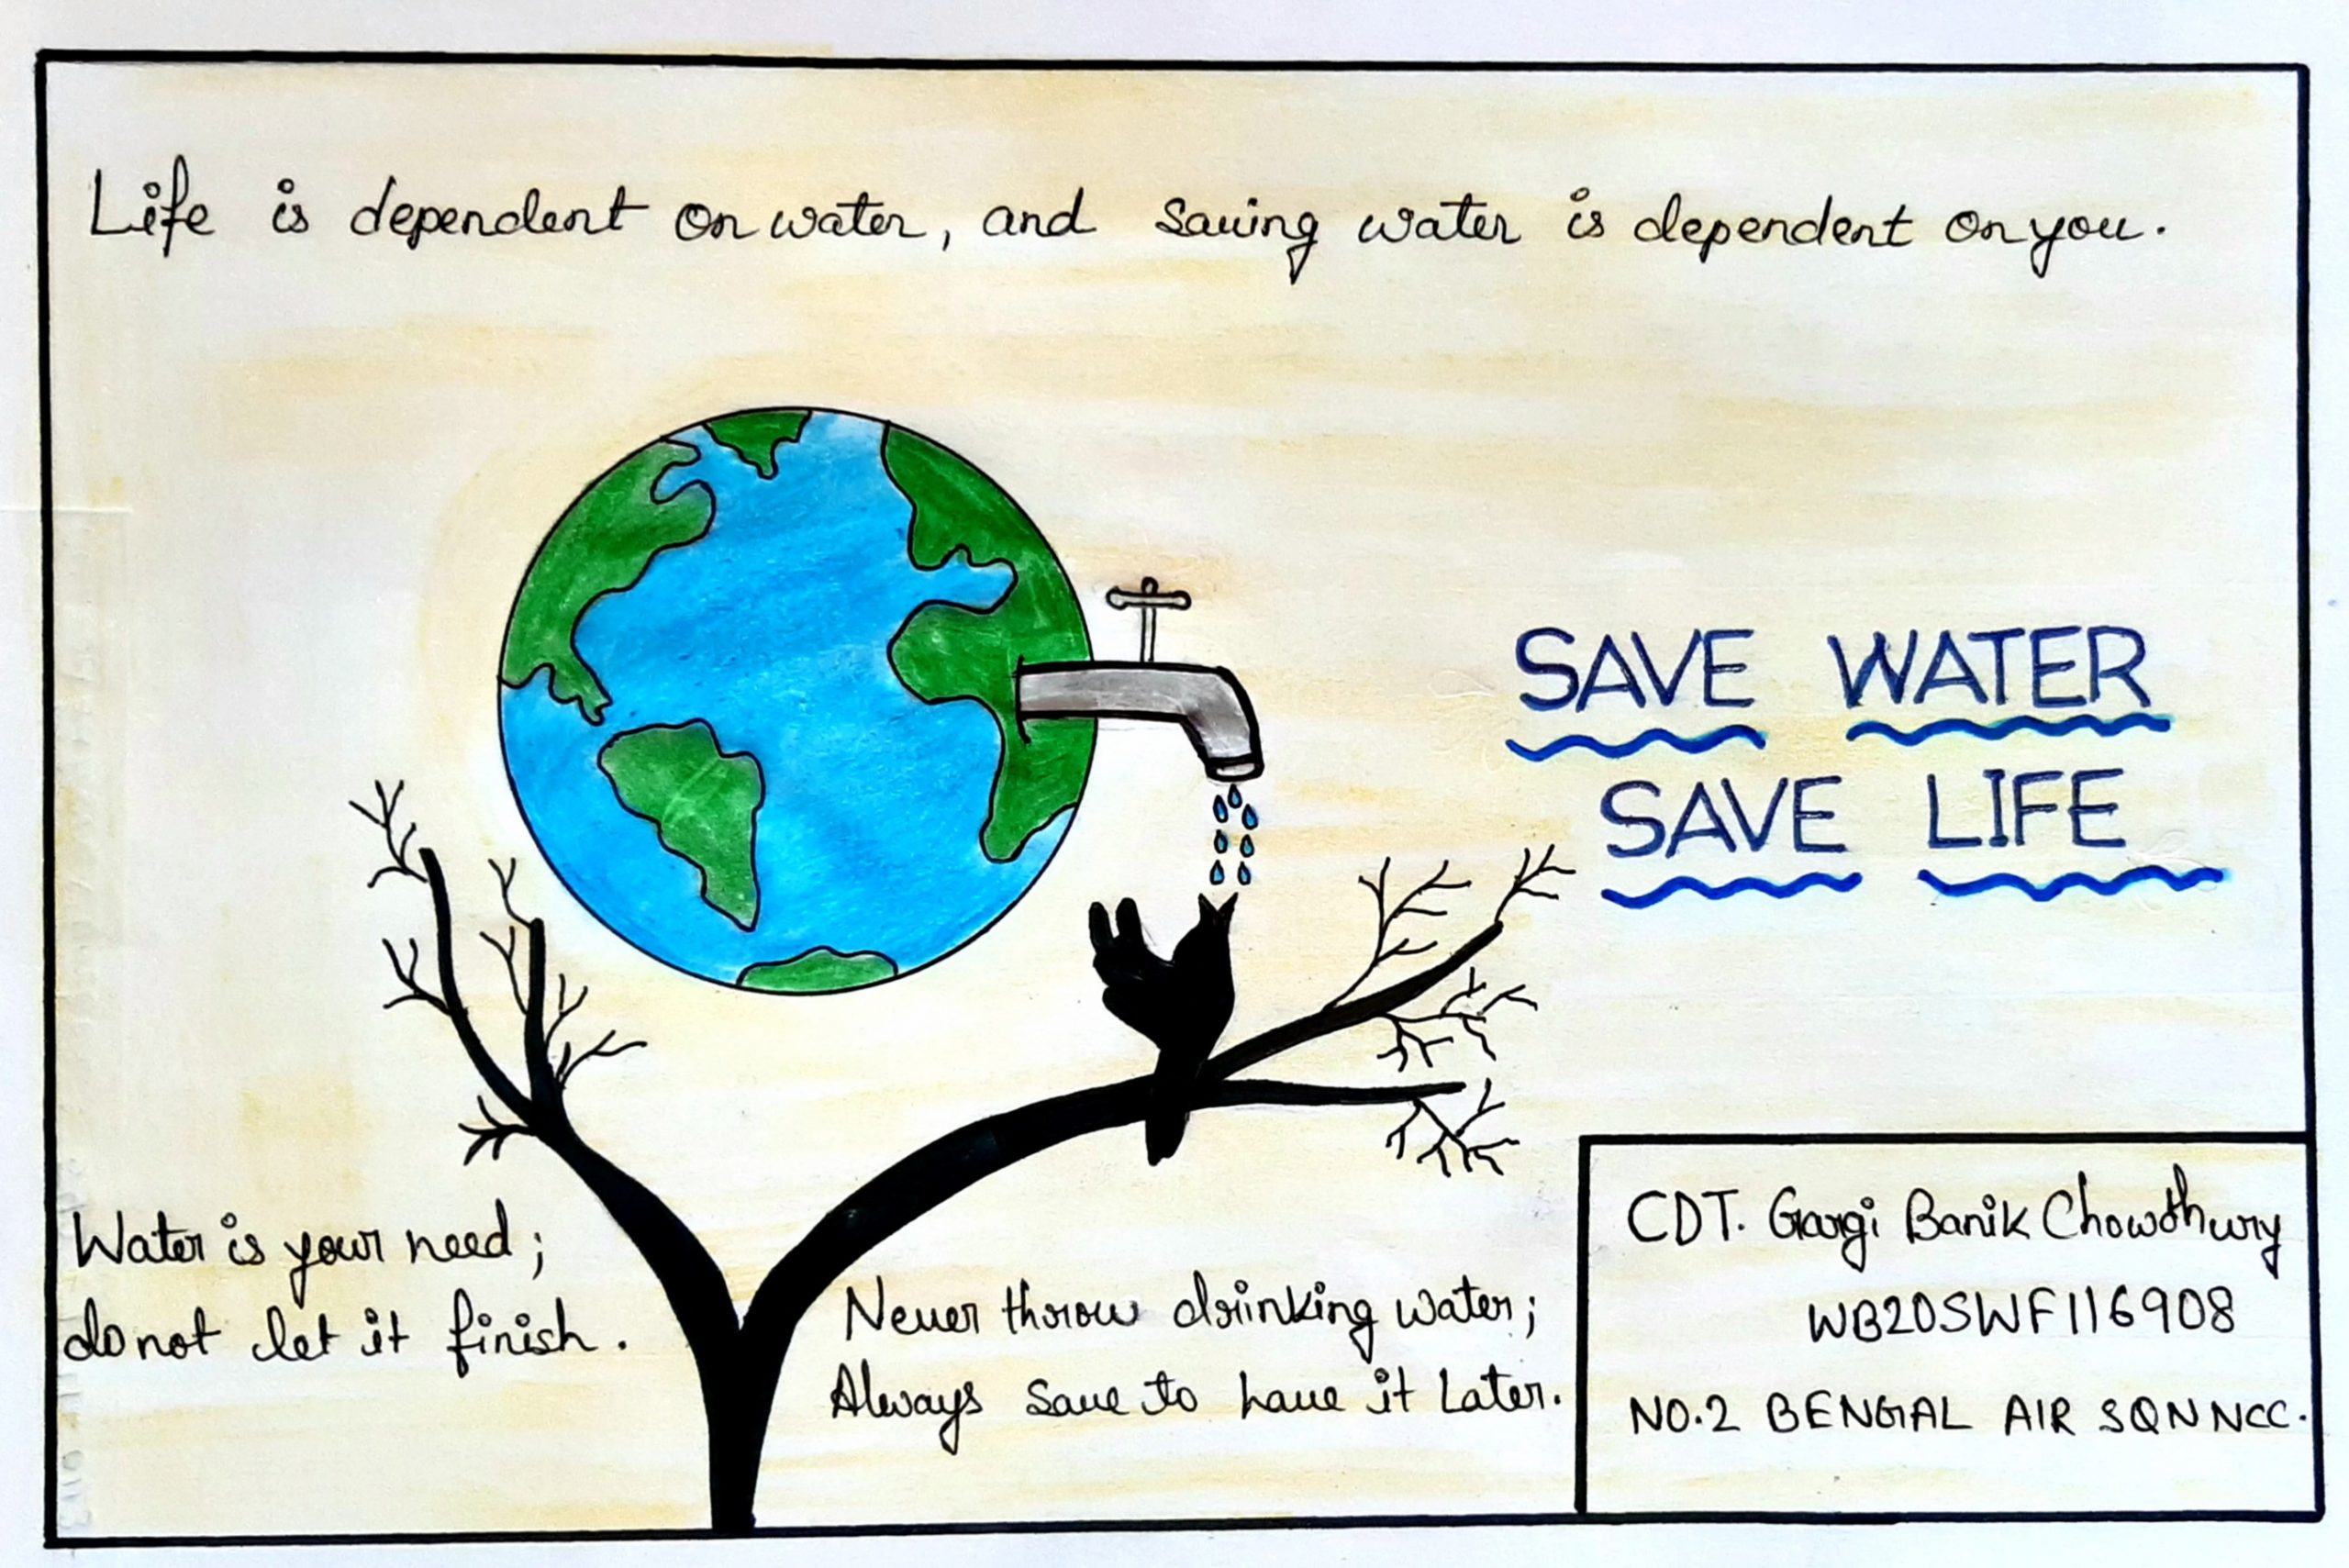 Life is dependent on water, and saving water is dependent on you.
SAVE WATER
SAVE LIFE
Water is your need;
do not let it finish.
Never throw drinking water;
Always save to have it later.
CDT. Gargi Banik Chowdhury
WB20SWF116908
NO.2 BENGAL AIR SQN NCC.